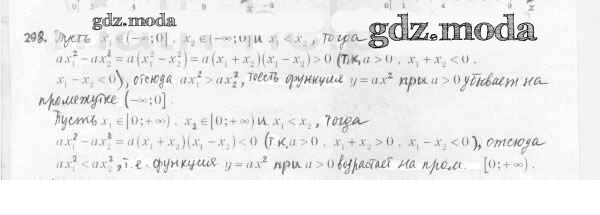 gdz.moda
298. Пусть x₁∈(−∞;0], x₂∈(−∞;0] и x₁<x₂, тогда
gdz.moda
ax₁²−ax₂²=a(x₁²−x₂²)=a(x₁+x₂)(x₁−x₂)>0 (т.к. a>0, x₁+x₂<0,
x₁−x₂<0), отсюда ax₁²>ax₂², то есть функция y=ax² при a>0 убывает на
промежутке (−∞;0].
Пусть x₁∈[0;+∞), x₂∈[0;+∞) и x₁<x₂, тогда
ax₁²−ax₂²=a(x₁+x₂)(x₁−x₂)<0 (т.к. a>0, x₁+x₂>0, x₁−x₂<0), отсюда
ax₁²<ax₂², т.е. функция y=ax² при a>0 возрастает на пром. [0;+∞).